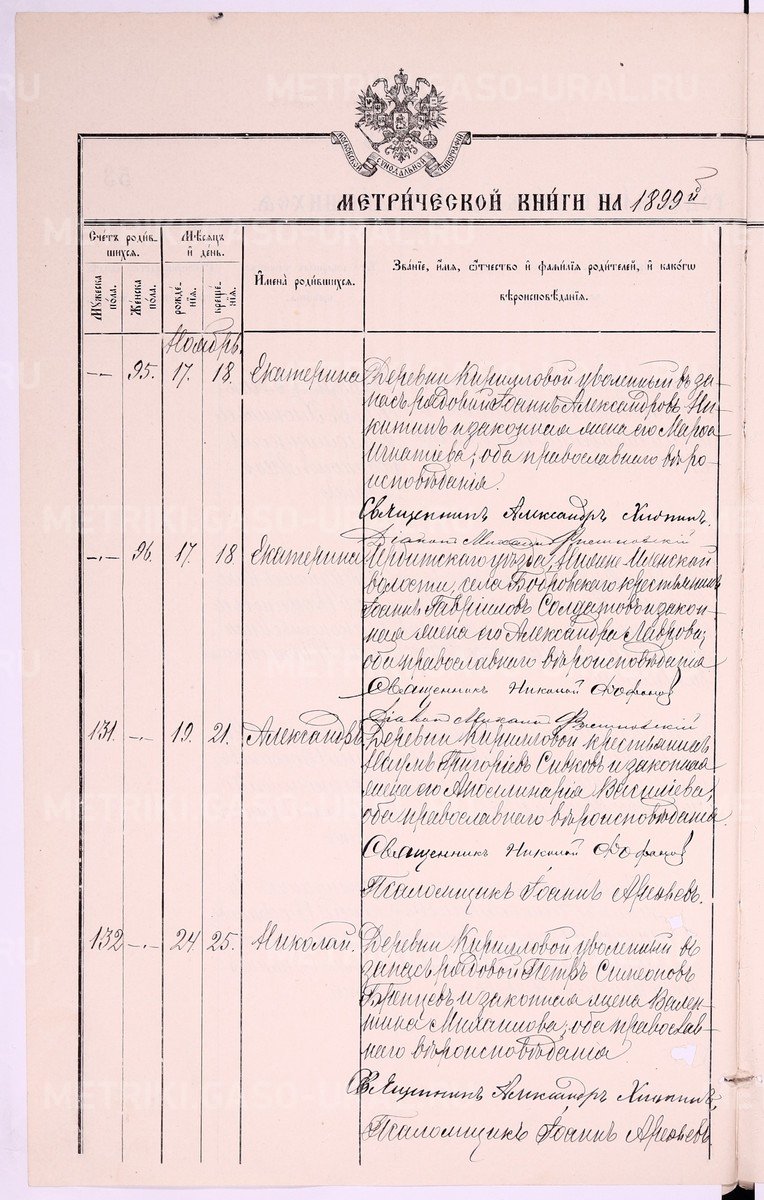 METRIKI.GASO-URAL.RU
МОСКОВСКОЙ СѴНОДАЛЬНОЙ ТИПОГРАФІИ
МЕТРИ́ЧЕСКОЙ КНИ́ГИ НА 1899й
Сче́тъ роди́в-
шихся.
Мꙋ́жеска по́ла.
Же́нска по́ла.
Мѣ́сяцъ и҆ де́нь.
рожде́-нїѧ.
креще́-нїѧ.
И҆мена̀ роди́вшихся.
Зва́нїе, и҆́мѧ, ѻ҆́тчество и҆ фами́лїѧ роди́телей, и҆ како́гѡ
вѣроисповѣ́данїѧ.
Ноябрь.
-"- 95. 17. 18. Екатерина Деревни Кирилловой уволенный въ за-
пасъ рядовой Іоаннъ Александровъ Ни-
китинъ и законная жена его Марѳа
Игнатіева; оба православнаго вѣро-
исповѣданія.
Священникъ Александръ
Діаконъ Михаилъ
-"- 96. 17. 18. Екатерина Ирбитскаго уѣзда,
волости, села Бобровскаго крестьянинъ
Іоаннъ Гавріиловъ Солдатовъ и закон-
ная жена его Александра Лаврова;
оба православнаго вѣроисповѣданія
Священникъ Николай
Діаконъ Михаилъ
131 -"- 19. 21. Александръ Деревни Кирилловой крестьянинъ
Наумъ Григоріевъ Сивковъ и законная
жена его Аполлинарія Василіева;
оба православнаго вѣроисповѣданія.
Священникъ Николай
Псаломщикъ Іоаннъ
132 -"- 24. 25. Николай. Деревни Кирилловой уволенный въ
запасъ рядовой Петръ Симеоновъ
и законная жена Вален-
тина Михаилова; оба православ-
наго вѣроисповѣданія.
Священникъ Александръ
Псаломщикъ Іоаннъ